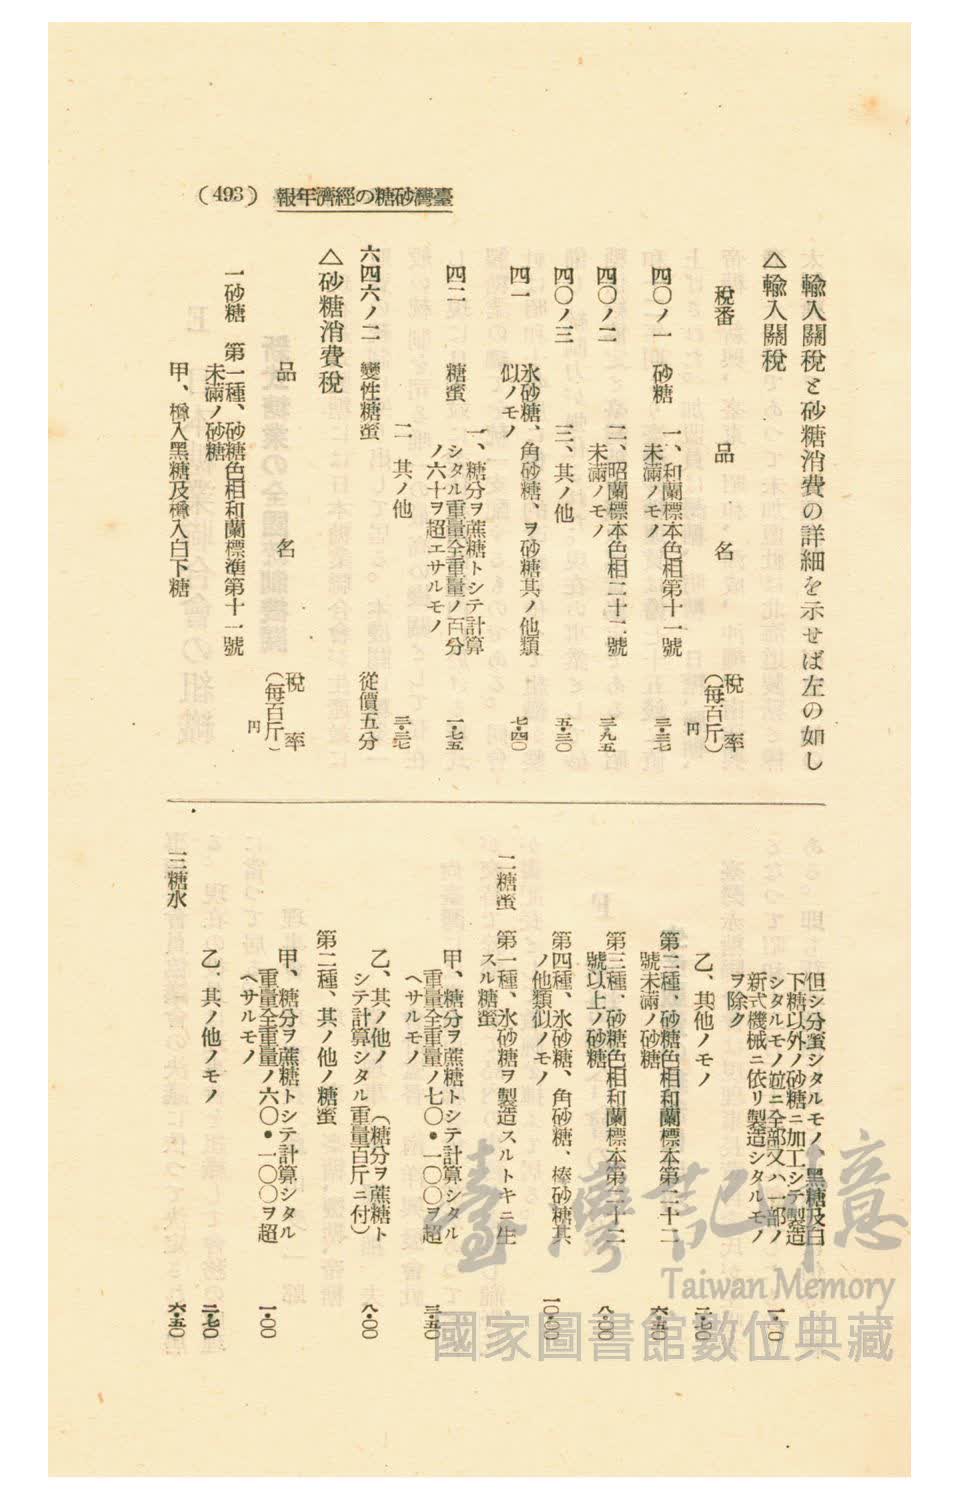 (493) 報年濟經の糖砂灣臺
輸入關稅と砂糖消費の詳細を示せば左の如し
△輸入關稅
稅番 品名 稅率(每百斤)
円
四〇ノ一 砂糖
一、和蘭標本色相第十一號
未滿ノモノ 三・三七
四〇ノ二 二、昭蘭標本色相二十二號
未滿ノモノ 三・九五
四〇ノ三 三、其ノ他 五・三〇
四一 氷砂糖、角砂糖、ヲ砂糖其ノ他類
似ノモノ 七・四〇
四二 糖蜜
一、糖分ヲ蔗糖トシテ計算
シタル重量全重量ノ百分
ノ六十ヲ超エサルモノ 一・七五
二 其ノ他 三・三七
六四六ノ二 變性糖蜜 從價五分
△砂糖消費稅
品名 稅率(每百斤)
円
一砂糖 第一種、砂糖色相和蘭標準第十一號
未滿ノ砂糖
甲、樽入黑糖及樽入白下糖
但シ分蜜シタルモノ、黑糖及白
下糖以外ノ砂糖ニ加工シテ製造
シタルモノ竝ニ全部又ハ一部ノ
新式機械ニ依リ製造シタルモノ
ヲ除ク 一・〇
乙、其他ノモノ 二・七〇
第二種、砂糖色相和蘭標本第二十二
號未滿ノ砂糖 六・五〇
第三種、砂糖色相和蘭標本第二十二
號以上ノ砂糖 八・〇〇
第四種、氷砂糖、角砂糖、棒砂糖其
ノ他類似ノモノ 一〇・〇〇
二糖蜜 第一種、氷砂糖ヲ製造スルトキニ生
スル糖蜜
甲、糖分ヲ蔗糖トシテ計算シタル
重量全重量ノ七〇・一〇〇ヲ超
ヘサルモノ 三・五〇
乙、其ノ他ノ(糖分ヲ蔗糖ト
シテ計算シタル重量百斤ニ付) 八・〇〇
第二種、其ノ他ノ糖蜜
甲、糖分ヲ蔗糖トシテ計算シタル
重量全重量ノ六〇・一〇〇ヲ超
ヘサルモノ 一・〇〇
乙、其ノ他ノモノ 二・七〇
三糖水 六・五〇
臺灣記憶
Taiwan Memory
國家圖書館數位典藏